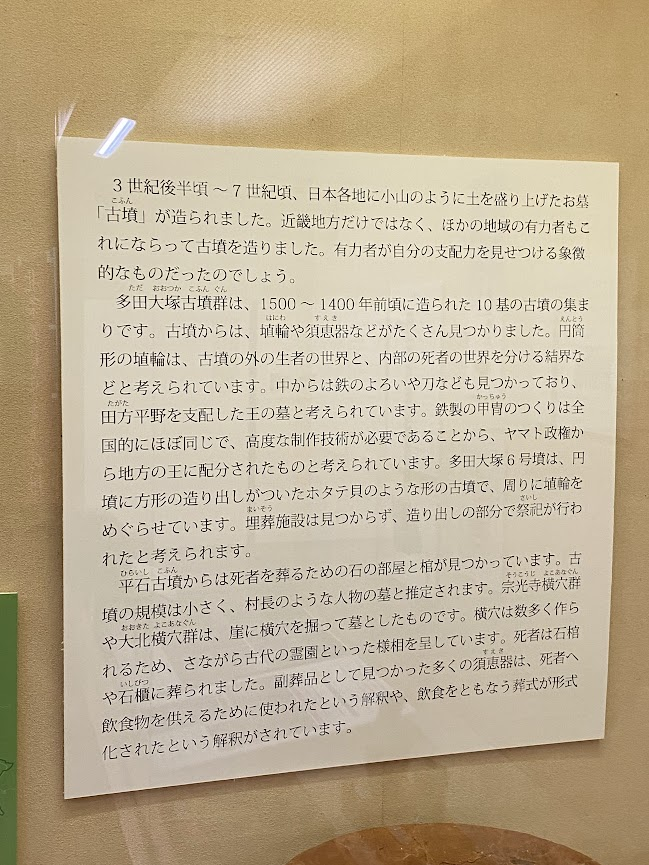 3世紀後半頃～7世紀頃、日本各地に小山のように土を盛り上げたお墓
「古墳」が造られました。近畿地方だけではなく、ほかの地域の有力者もこ
れにならって古墳を造りました。有力者が自分の支配力を見せつける象徴
的なものだったのでしょう。
多田大塚古墳群は、1500～1400年前頃に造られた10基の古墳の集ま
りです。古墳からは、埴輪や須恵器などがたくさん見つかりました。円筒
形の埴輪は、古墳の外の生者の世界と、内部の死者の世界を分ける結界な
どと考えられています。中からは鉄のよろいや刀なども見つかっており、
田方平野を支配した王の墓と考えられています。鉄製の甲冑のつくりは全
国的にほぼ同じで、高度な制作技術が必要であることから、ヤマト政権か
ら地方の王に配分されたものと考えられています。多田大塚6号墳は、円
墳に方形の造り出しがついたホタテ貝のような形の古墳で、周りに埴輪を
めぐらせています。埋葬施設は見つからず、造り出しの部分で祭祀が行わ
れたと考えられます。
平石古墳からは死者を葬るための石の部屋と棺が見つかっています。古
墳の規模は小さく、村長のような人物の墓と推定されます。宗光寺横穴群
や大北横穴群は、崖に横穴を掘って墓としたものです。横穴は数多く作ら
れるため、さながら古代の霊園といった様相を呈しています。死者は石棺
や石櫃に葬られました。副葬品として見つかった多くの須恵器は、死者へ
飲食物を供えるために使われたという解釈や、飲食をともなう葬式が形式
化されたという解釈がされています。